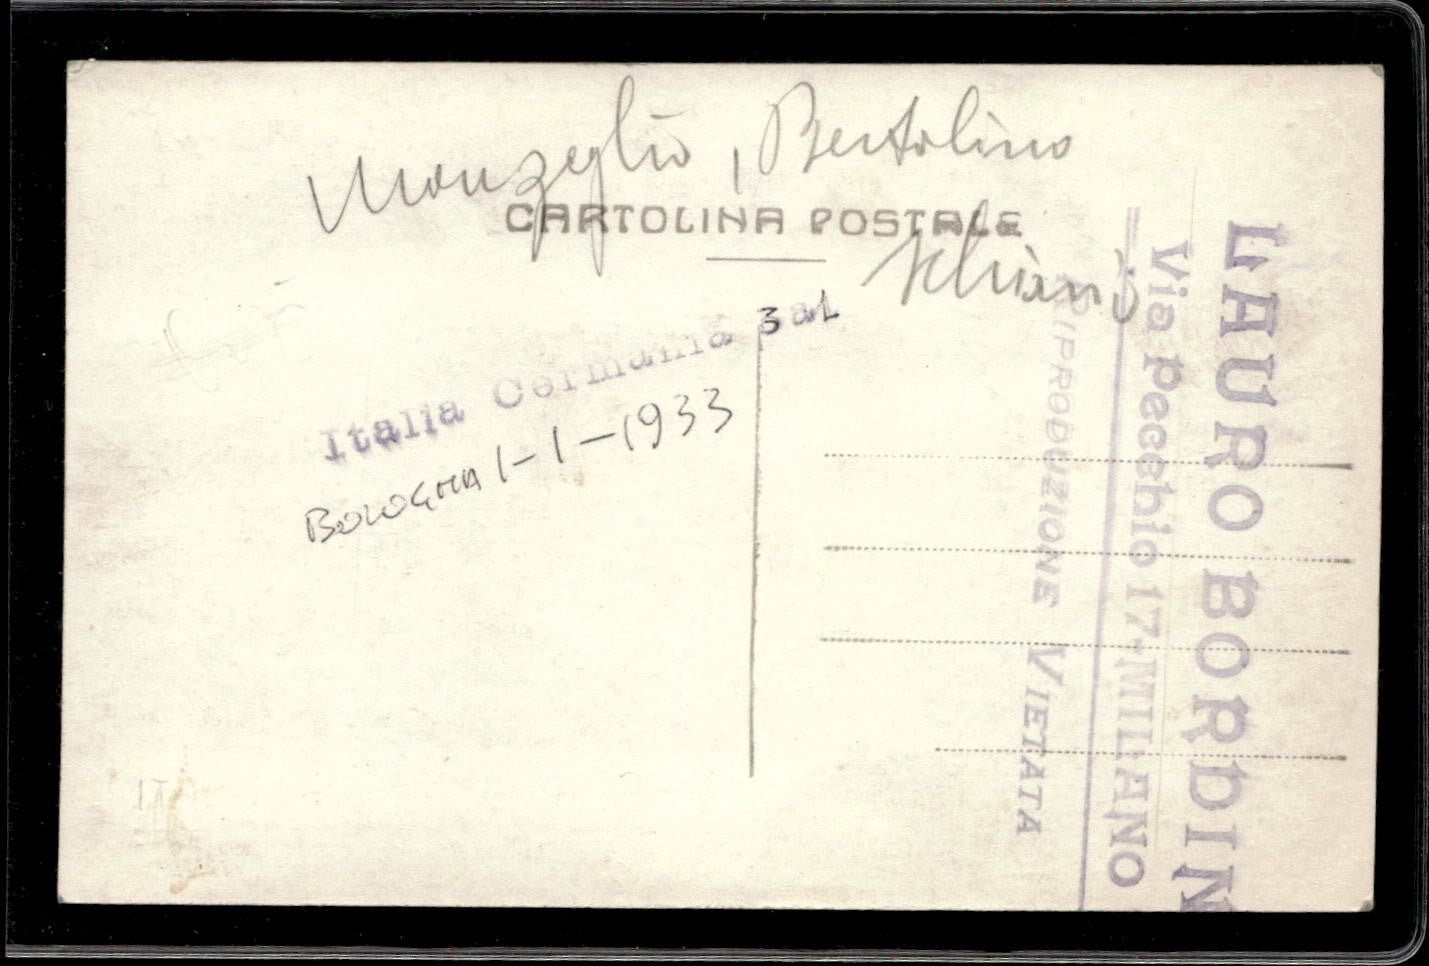 Monzeglio, Bertolino
CARTOLINA POSTALE
Schiavio
Italia Germania 3 a 1
BOLOGNA 1-1-1933
LAURO BORDIN
Via Pecchio 17-MILANO
RIPRODUZIONE VIETATA
1T